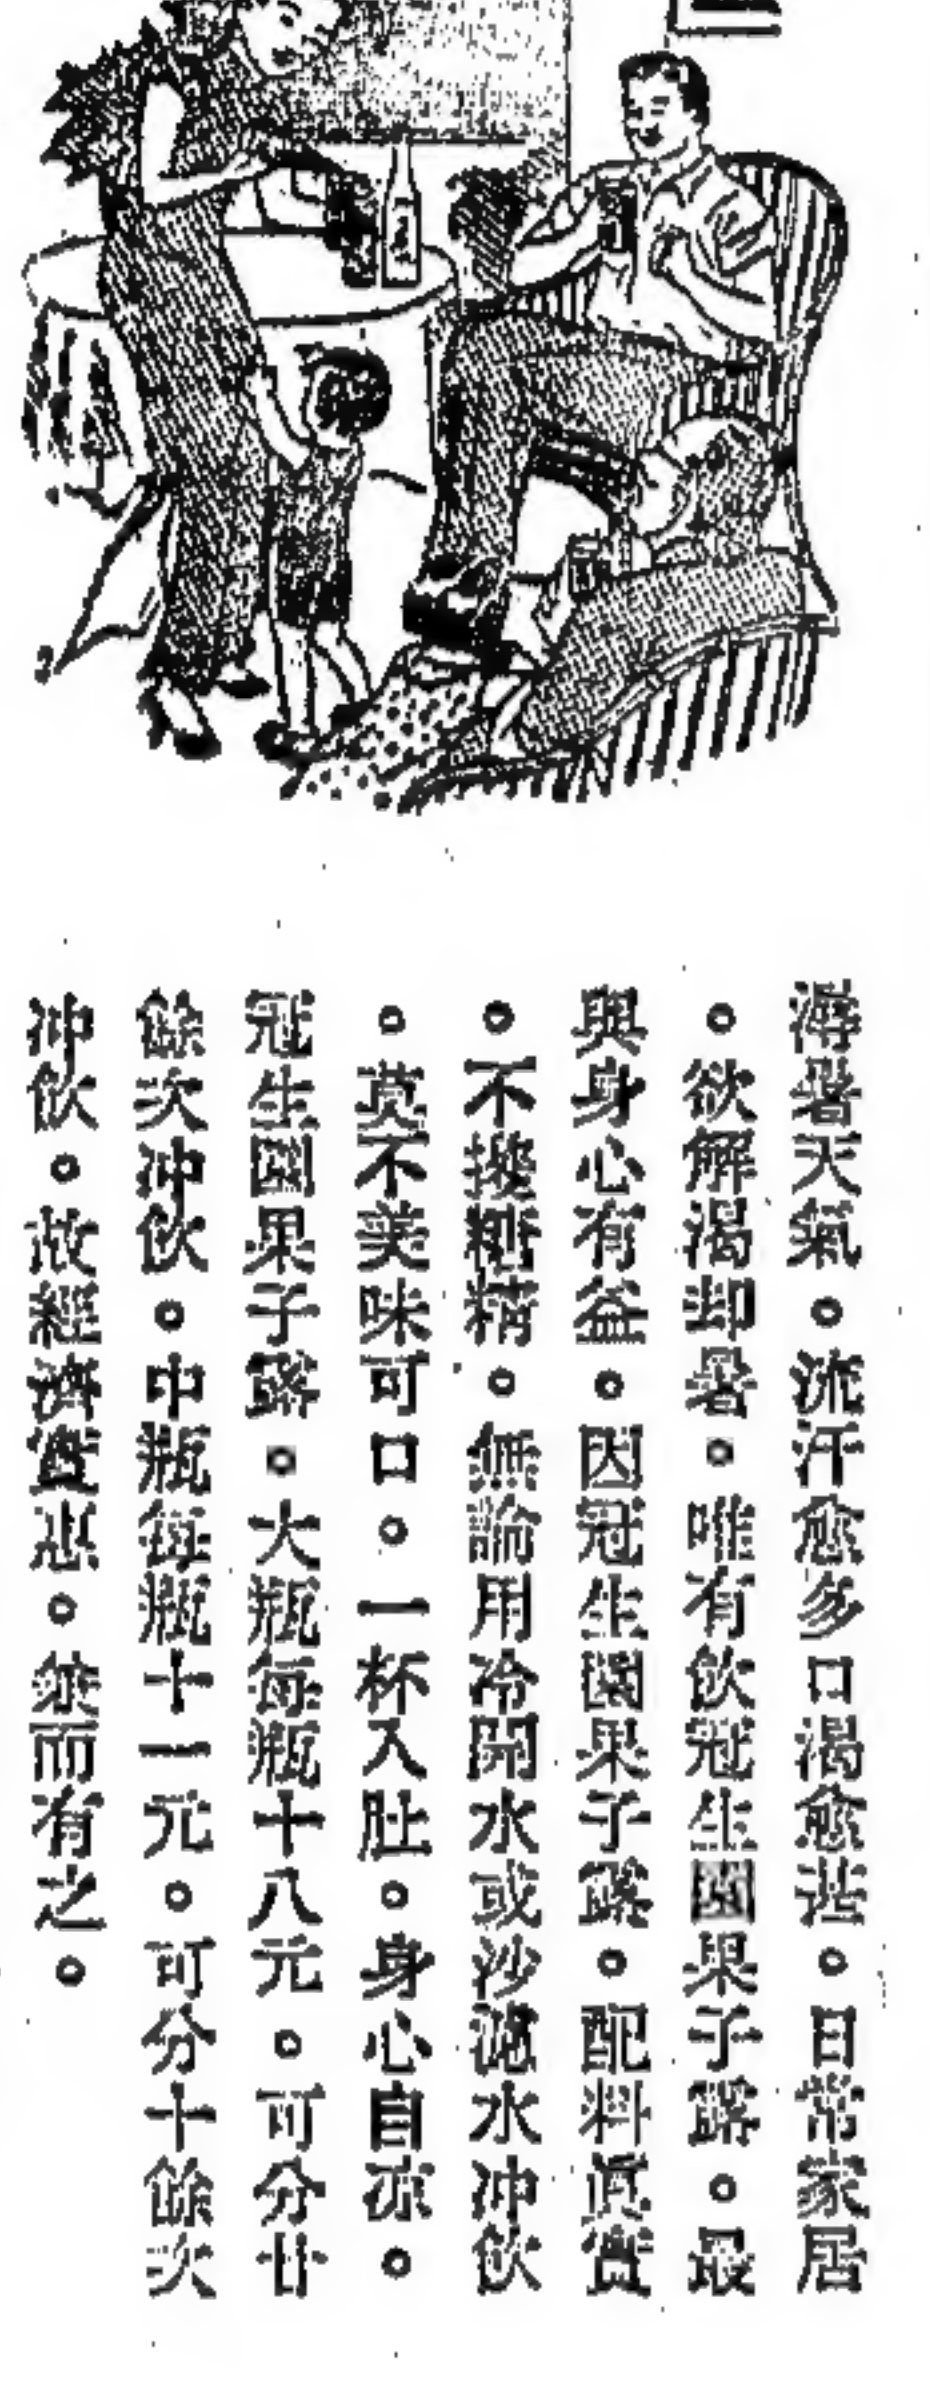 溽暑天氣。流汗愈多口渴愈甚。日常家居
。欲解渴却暑。唯有飲冠生園果子露。最
與身心有益。因冠生園果子露。配料眞實
。不攙糖精。無論用冷開水或沙濾水冲飲
。莫不美味可口。一杯入肚。身心自凉。
冠生園果子露。大瓶每瓶十八元。可分廿
餘次冲飲。中瓶每瓶十一元。可分十餘次
冲飲。故經濟實惠。兼而有之。